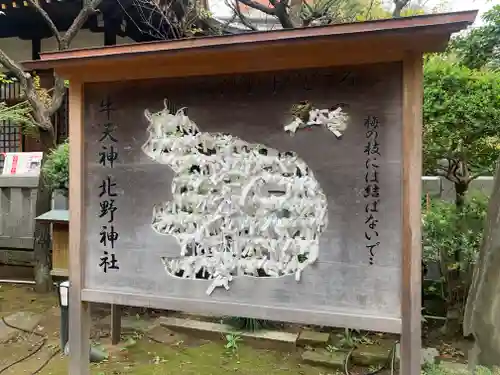 梅の枝には結ばないで…
牛天神 北野神社